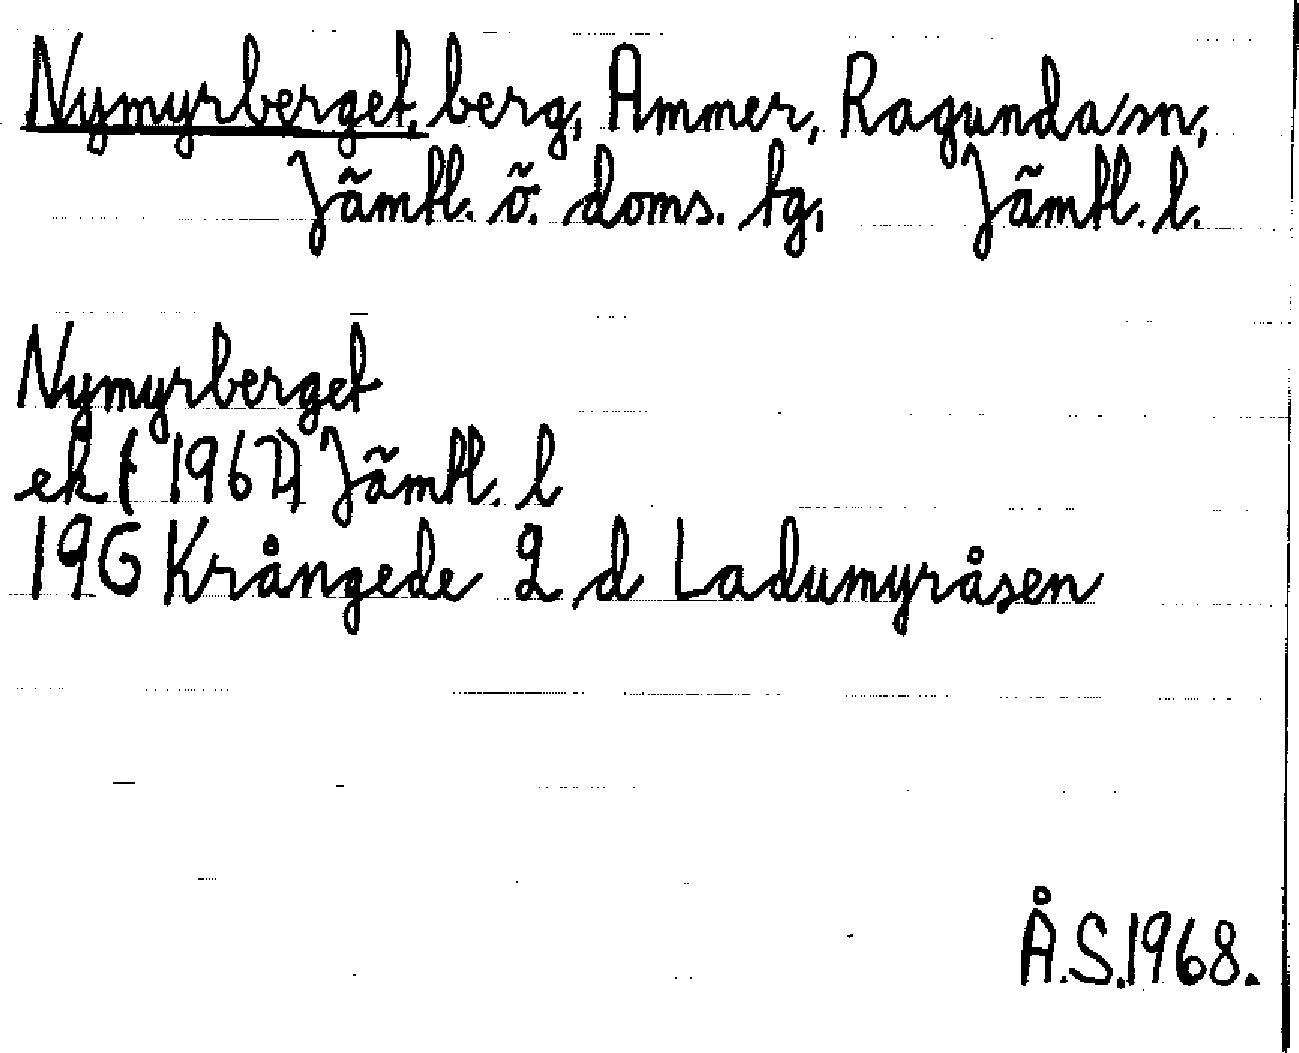 Nymyrberget, berg, Ammer, Ragunda sn,
Jämtl. ö. doms. tg, Jämtl. l.
Nymyrberget
ek (1967) Jämtl. l
19G Krångede 2 d Ladumyråsen
Å.S.1968.